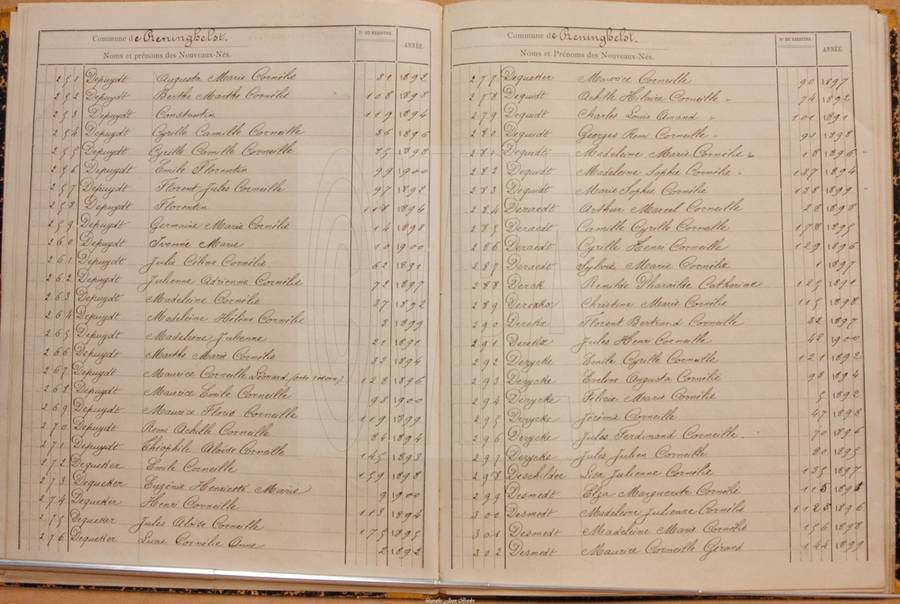 Commune de Reninghelst.
Nos DU REGISTRE.
ANNÉE.
Noms et prénoms des Nouveaux-Nés.
251 Depuydt Augusta Marie Cornélie 31 1892
252 Depuydt Berthe Marthe Cornélie 108 1898
253 Depuydt Constantin 119 1894
254 Depuydt Cyrille Camille Corneille 36 1896
255 Depuydt Cyrille Camille Corneille 85 1898
256 Depuydt Emile Florentin 99 1900
257 Depuydt Florent Jules Corneille 97 1892
258 Depuydt Florentin 118 1894
259 Depuydt Germaine Marie Cornélie 14 1898
260 Depuydt Ivonne Marie 10 1900
261 Depuydt Julie Céline Cornélie 62 1891
262 Depuydt Julienne Adrienne Cornélie 72 1897
263 Depuydt Madeleine Cornélie 37 1892
264 Depuydt Madeleine Hélène Cornélie 8 1899
265 Depuydt Madeleine Julienne 21 1891
266 Depuydt Marthe Marie Cornélie 32 1894
267 Depuydt Maurice Corneille Léonard 128 1896
268 Depuydt Maurice Emile Corneille 98 1900
269 Depuydt Maurice Floris Corneille 119 1899
270 Depuydt Remi Achille Corneille 34 1894
271 Depuydt Théophile Aloïse Corneille 145 1893
272 Dequeker Emile Corneille 159 1898
273 Dequeker Eugénie Henriette Marie 9 1900
274 Dequeker Henri Corneille 113 1894
275 Dequeker Jules Aloïse Corneille 175 1895
276 Dequeker Cornélie Anna 2 1892
Commune de Reninghelst.
Nos DU REGISTRE.
ANNÉE.
Noms et Prénoms des Nouveaux-Nés.
277 Dequeker Maurice Corneille 90 1897
278 Dequidt Achille Hilaire Corneille 74 1892
279 Dequidt Charles Louis Amand 101 1891
280 Dequidt Georges Remi Corneille 93 1898
281 Dequidt Madeleine Marie Cornélie 18 1896
282 Dequidt Madeleine Sophie Cornélie 137 1894
283 Dequidt Marie Sophie Cornélie 138 1899
284 Deraedt Arthur Marcel Corneille 28 1898
285 Deraedt Camille Cyrille Corneille 178 1895
286 Deraedt Cyrille Henri Corneille 129 1896
287 Deraedt Sylvie Marie Cornélie 1 1897
288 Derck Remilde Dharailde Catherine 125 1891
289 Christine Marie Cornélie 115 1898
290 Florent Bertrand Corneille 32 1897
291 Jules Henri Corneille 48 1900
292 Derycke Emile Cyrille Corneille 121 1892
293 Derycke Eveline Augusta Cornélie 98 1894
294 Derycke Félicie Marie Cornélie 5 1892
295 Derycke Jérémie Corneille 47 1898
296 Derycke Jules Ferdinand Corneille 70 1896
297 Derycke Jules Julien Corneille 30 1895
298 Deschilder Lisa Julienne Cornélie 135 1897
299 Desmedt Elza Marguerite Cornélie
300 Desmedt Madeleine Julienne Cornélie
301 Desmedt Madeleine Marie Cornélie 156 1898
302 Desmedt Maurice Corneille Gérard 144 1899